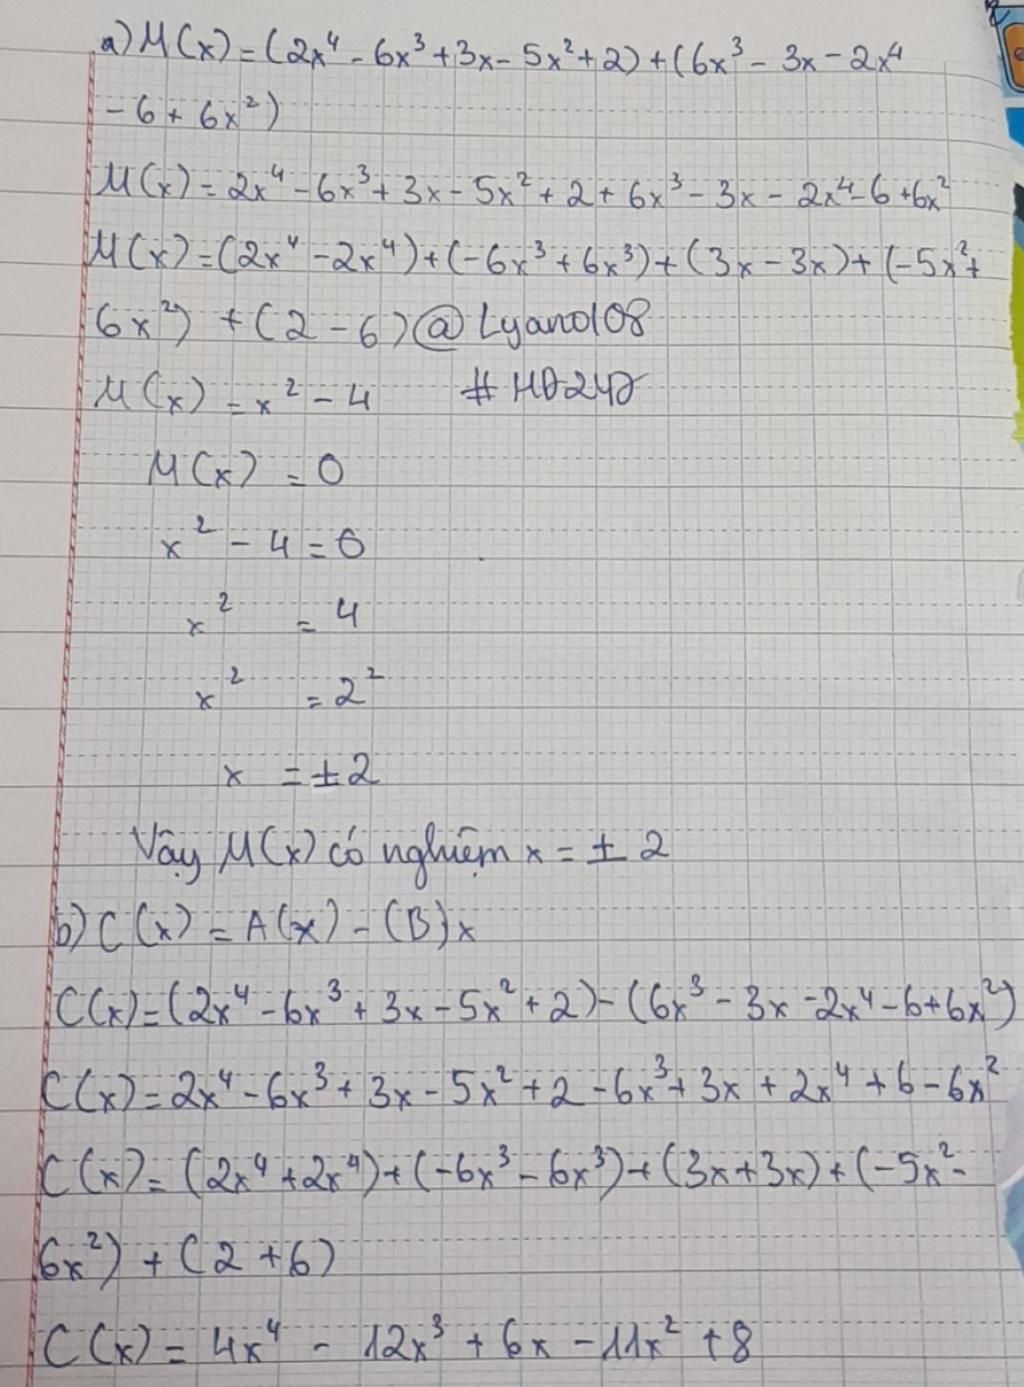 a) M(x) = (2x⁴ - 6x³ + 3x - 5x² + 2) + (6x³ - 3x - 2x⁴
- 6 + 6x²)
M(x) = 2x⁴ - 6x³ + 3x - 5x² + 2 + 6x³ - 3x - 2x⁴ - 6 + 6x²
M(x) = (2x⁴ - 2x⁴) + (-6x³ + 6x³) + (3x - 3x) + (-5x² +
6x²) + (2 - 6) @Lyano108
M(x) = x² - 4
M(x) = 0
x² - 4 = 0
x² = 4
x² = 2²
x = ± 2
Vậy M(x) có nghiệm x = ± 2
b) C(x) = A(x) - (B)x
C(x) = (2x⁴ - 6x³ + 3x - 5x² + 2) - (6x³ - 3x - 2x⁴ - 6 + 6x²)
C(x) = 2x⁴ - 6x³ + 3x - 5x² + 2 - 6x³ + 3x + 2x⁴ + 6 - 6x²
C(x) = (2x⁴ + 2x⁴) + (-6x³ - 6x³) + (3x + 3x) + (-5x² -
6x²) + (2 + 6)
C(x) = 4x⁴ - 12x³ + 6x - 11x² + 8